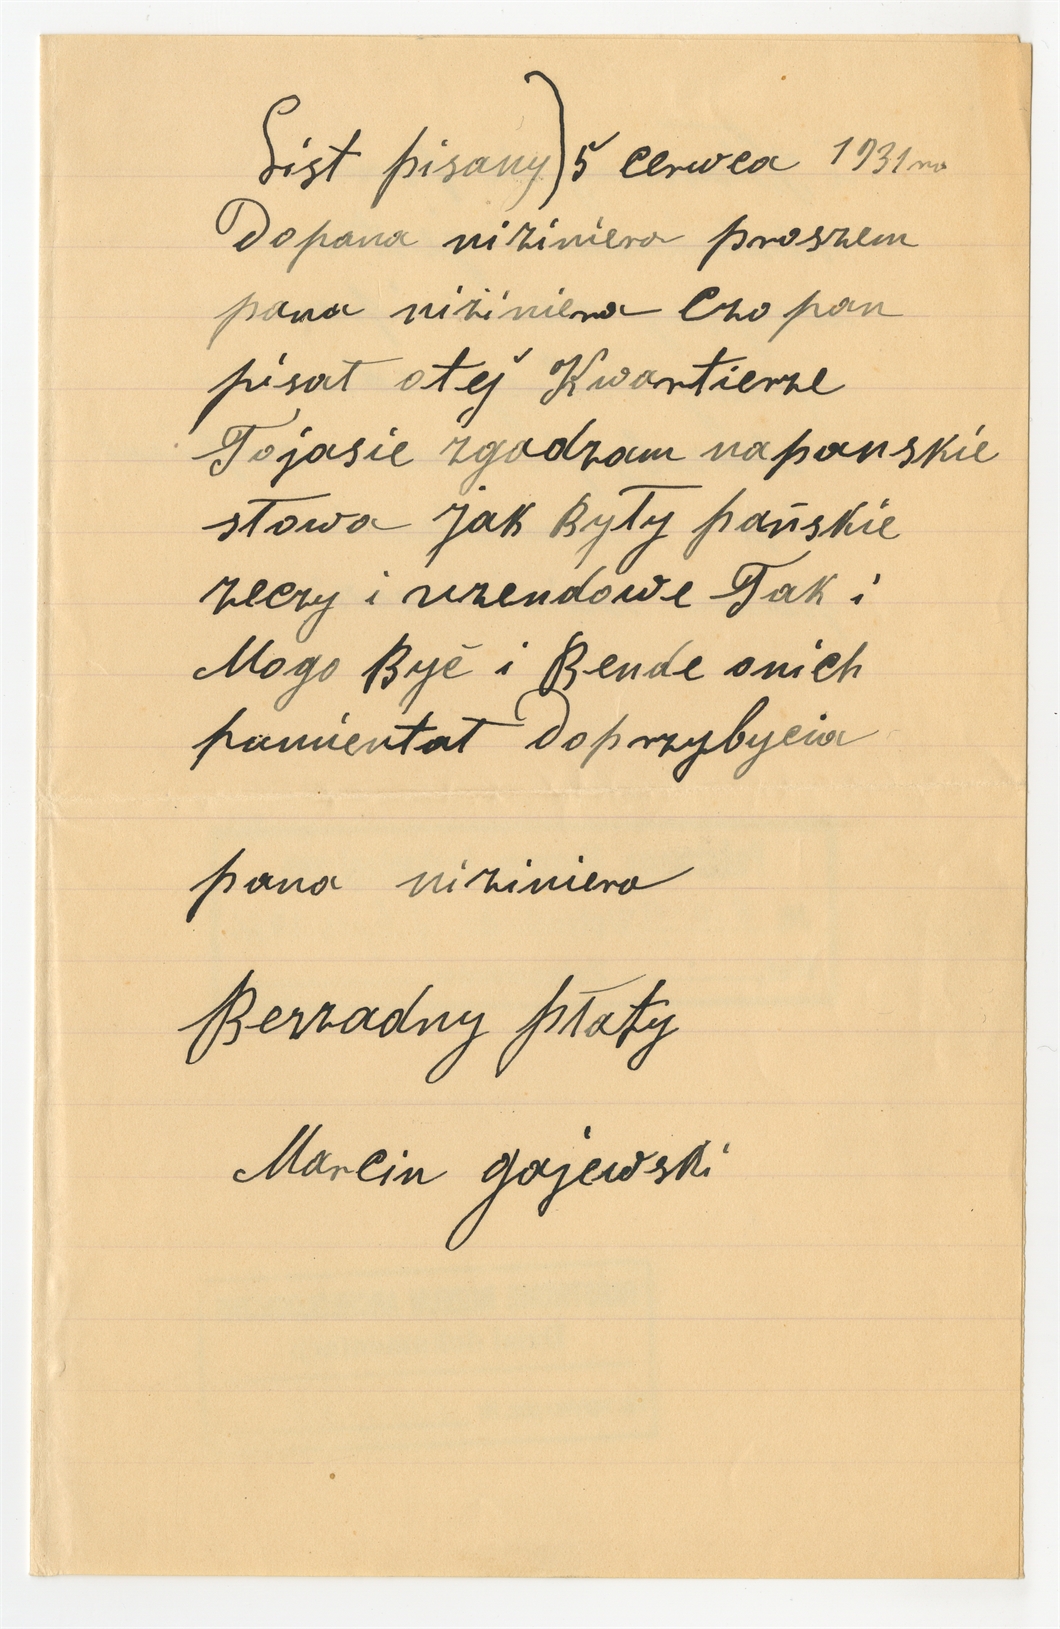 List pisany) 5 cerwca 1931 ro
Do pana niziniera proszem
pana niziniera Czo pan
pisat otej Kwartierze
Tojasie zgodzam napanskie
stowa jak Byty pańskie
zeczy i uzendowe Tak i
Mogo Być i Bende onich
pamientat Doprzybycia
pana niziniera
Bezzadny ptaty
Marcin gajewski